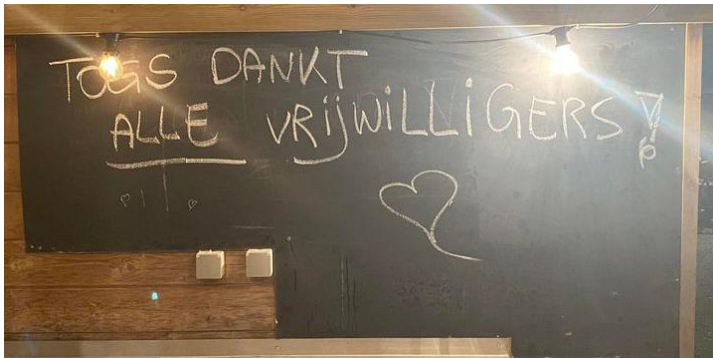 TOGS DANKT
ALLE VRIJWILLIGERS!